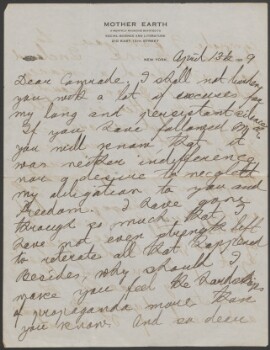 MOTHER EARTH
210 EAST 13th STREET
NEW YORK, April 13th 9
Dear Comrade, I shall not burden
you with a lot of excuses for
my long and persistent silence
If you have followed
you will know that it
was neither indifference
nor a desire to neglect
my obligation to you and
Freedom. I have gone
through so much that I
have not even strength left
to reiterate all that happened
Besides, why should I
make you feel the hardships
of propaganda more than
you know. And so dear